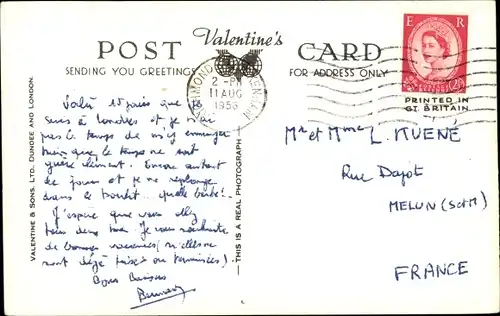 POST
Valentine's
CARD
SENDING YOU GREETINGS
FOR ADDRESS ONLY
E R
2½
PRINTED IN
GT BRITAIN
RICHMOND
2 - PM
11 AUG
1956
VALENTINE & SONS. LTD. DUNDEE AND LONDON.
THIS IS A REAL PHOTOGRAPH
Voilà que je
suis à Londres et je n'ai
pas le temps de m'y ennuyer
bien que le temps ne soit
guère clément. Encore autant
de jours et je me replonge
dans le boulot. quelle
J'espère que vous allez
tous deux bien. Je vous souhaite
de bonnes vacances (si elles ne
sont déjà prises ou terminées)
Bons Baisers
Mr et Mme L. KUENÉ
Rue Dajot
MELUN (S et M)
FRANCE